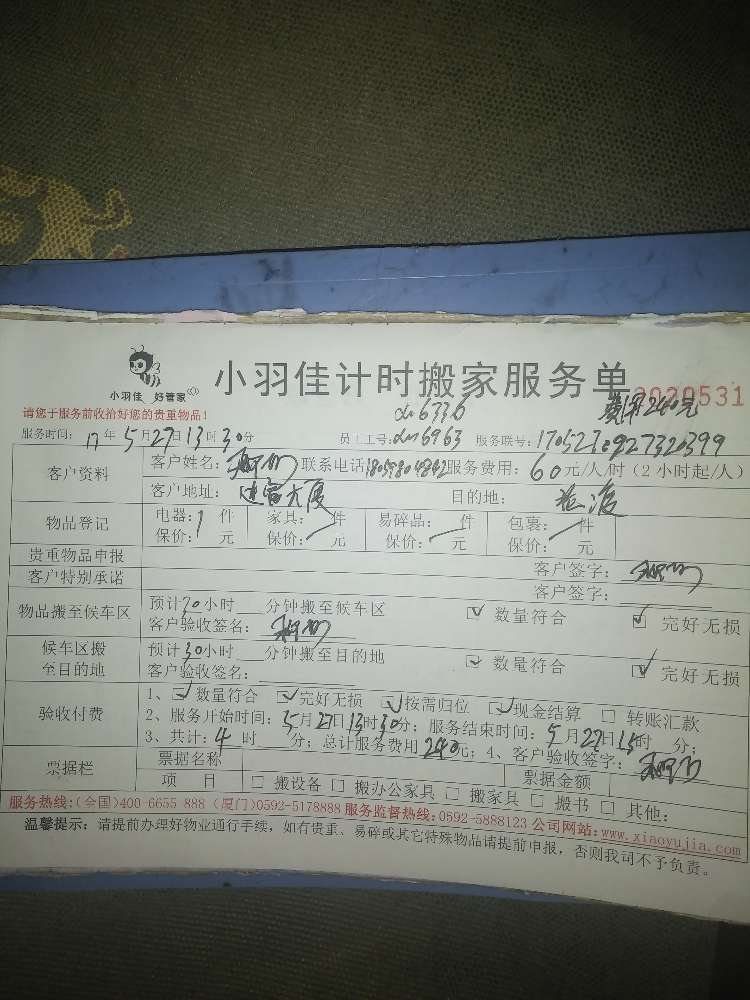 小羽佳 好管家
小羽佳计时搬家服务单
2020531
请您于服务前收拾好您的贵重物品！
6336
费用240元
服务时间：17年5月27日13时30分 员工工号：6963 服务联号：
客户资料
客户姓名： 联系电话 服务费用：60元/人/时（2小时起/人）
客户地址：建富大厦 目的地：
物品登记
电器：1件 家具： 件 易碎品： 件 包裹： 件
保价： 元 保价： 元 保价： 元 保价： 元
贵重物品申报 客户签字：
客户特别承诺 客户签字：
物品搬至候车区
预计 小时 分钟搬至候车区 ☑ 数量符合 ☑ 完好无损
客户验收签名：
候车区搬至目的地
预计30小时 分钟搬至目的地 ☑ 数量符合 ☑ 完好无损
客户验收签名：
验收付费
1、☑数量符合 ☑完好无损 ☑按需归位 ☑现金结算 □ 转账汇款
2、服务开始时间：5月27日13时30分；服务结束时间：5月27日15时 分；
3、共计：4 时 分；总计服务费用240元；4、客户验收签字：
票据栏
票据名称 票据金额
项 目 □ 搬设备 □ 搬办公家具 □ 搬家具 □ 搬书 □ 其他：
服务热线：（全国）400 6655 888（厦门）0592-5178888 服务监督热线：0592-5888123 公司网站：www.xiaoyujia.com
温馨提示：请提前办理好物业通行手续，如有贵重、易碎或其它特殊物品请提前申报，否则我司不予负责。